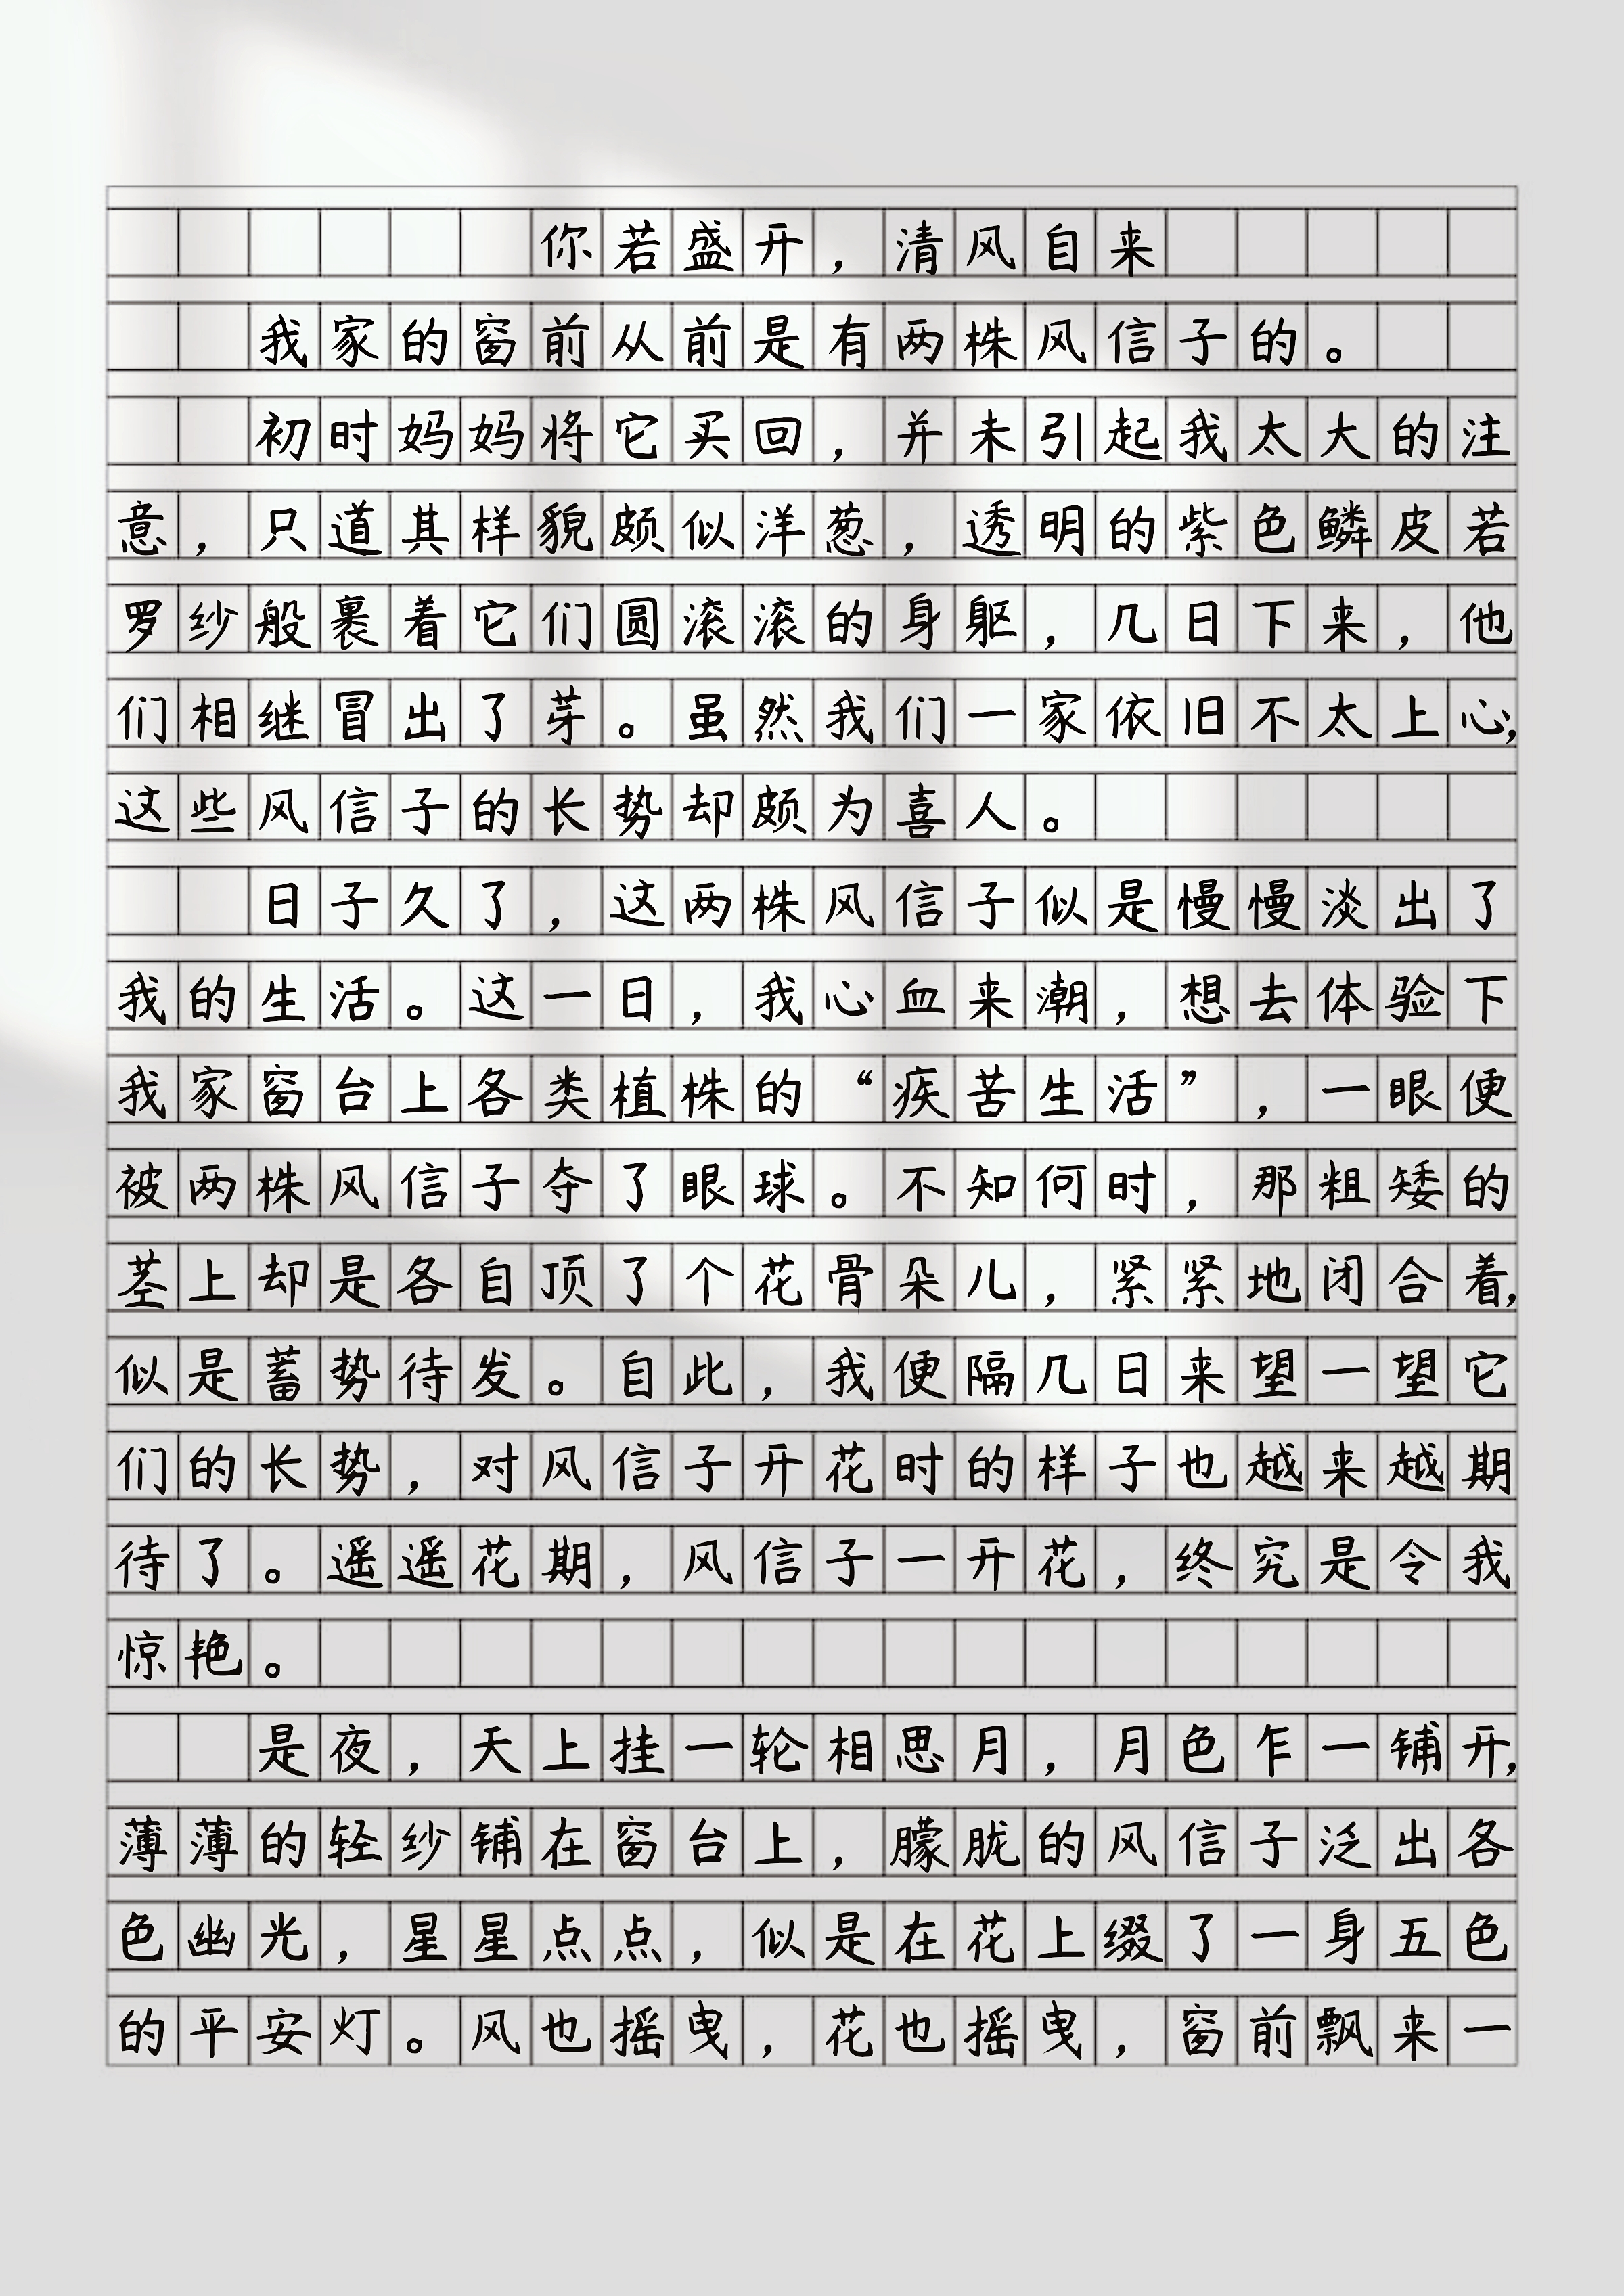 你若盛开，清风自来
我家的窗前从前是有两株风信子的。
初时妈妈将它买回，并未引起我太大的注
意，只道其样貌颇似洋葱，透明的紫色鳞皮若
罗纱般裹着它们圆滚滚的身躯，几日下来，他
们相继冒出了芽。虽然我们一家依旧不太上心，
这些风信子的长势却颇为喜人。
日子久了，这两株风信子似是慢慢淡出了
我的生活。这一日，我心血来潮，想去体验下
我家窗台上各类植株的“疾苦生活”，一眼便
被两株风信子夺了眼球。不知何时，那粗矮的
茎上却是各自顶了个花骨朵儿，紧紧地闭合着，
似是蓄势待发。自此，我便隔几日来望一望它
们的长势，对风信子开花时的样子也越来越期
待了。遥遥花期，风信子一开花，终究是令我
惊艳。
是夜，天上挂一轮相思月，月色乍一铺开，
薄薄的轻纱铺在窗台上，朦胧的风信子泛出各
色幽光，星星点点，似是在花上缀了一身五色
的平安灯。风也摇曳，花也摇曳，窗前飘来一